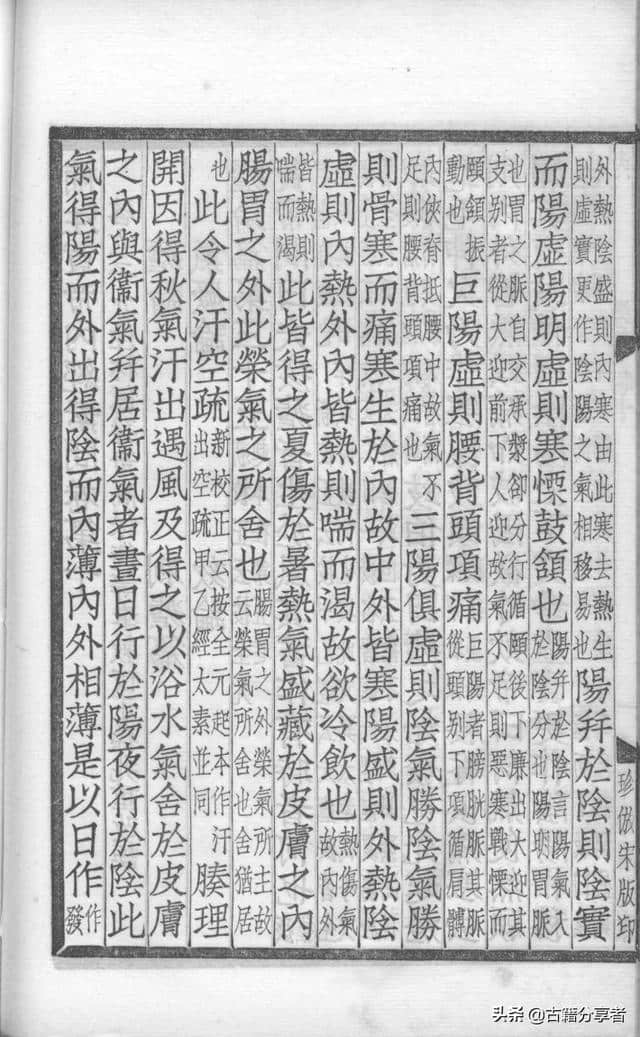 外熱陰盛則內寒由此寒去熱生則虛實更作陰陽之氣相移易也陽幷於陰則陰實
而陽虛陽明虛則寒慄鼓頷也陽幷於陰言陽氣入於陰分也陽明胃脈
也胃之脈自交承漿卻分行循頤後下廉出大迎其支別者從大迎前下人迎故氣不足則惡寒戰慄而
頤頷振動也巨陽虛則腰背頭項痛巨陽者膀胱脈其脈從頭別下項循肩髆
內俠脊抵腰中故氣不足則腰背頭項痛也三陽俱虛則陰氣勝陰氣勝
則骨寒而痛寒生於內故中外皆寒陽盛則外熱陰
虛則內熱外內皆熱則喘而渴故欲冷飲也熱傷氣故內外
皆熱則喘而渴此皆得之夏傷於暑熱氣盛藏於皮膚之內
腸胃之外此榮氣之所舍也腸胃之外榮氣所主故云榮氣所舍也舍猶居
也此令人汗空疏新校正云按全元起本作汗出空疏甲乙經太素並同腠理
開因得秋氣汗出遇風及得之以浴水氣舍於皮膚
之內與衞氣幷居衞氣者晝日行於陽夜行於陰此
氣得陽而外出得陰而內薄內外相薄是以日作作發
珍倣宋版印
头条 @古籍分享者